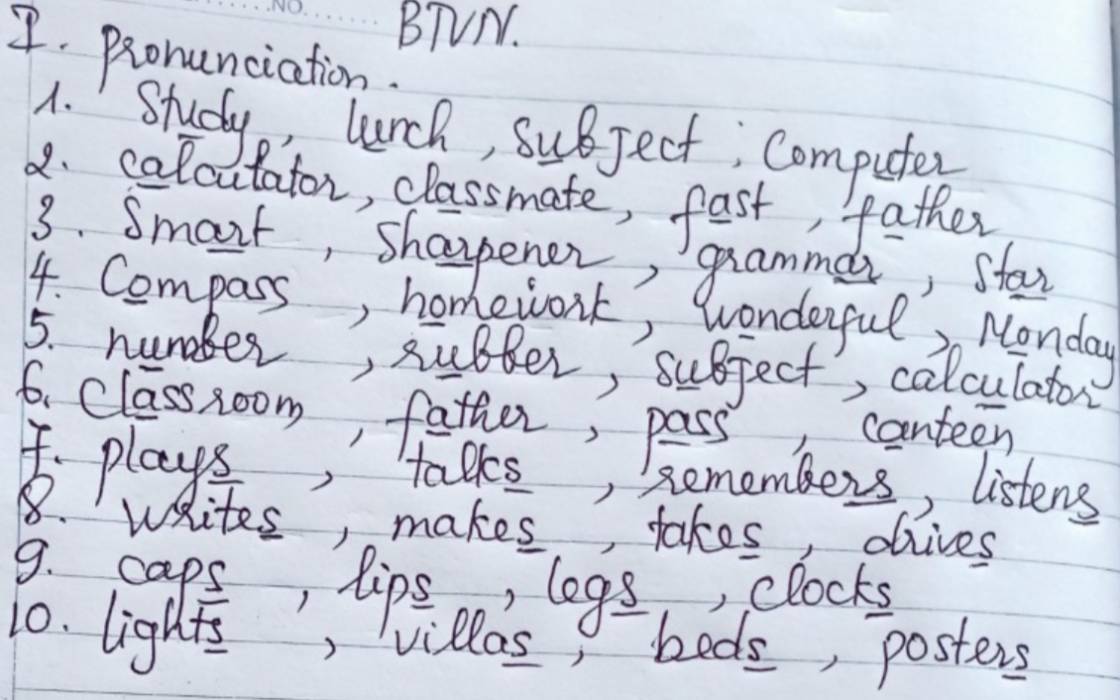 NO.
BTVN.
I. Pronunciation.
1. Study, lunch, subject, computer
2. calculator, classmate, fast, father
3. Smart, Sharpener, grammar, star
4. Compass, homework, wonderful, Monday
5. number, rubber, subject, calculator
6. Classroom, father, pass, canteen
7. plays, talks, remembers, listens
8. writes, makes, takes, drives
9. caps, lips, legs, clocks
10. lights, villas, beds, posters